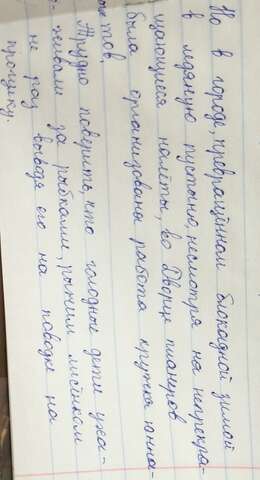 Но в городе, превращённом блокадной зимой
в ледяную пустыню, несмотря на непрекра-
щающиеся налёты, во Дворце пионеров
была организована работа кружка юнна-
тов.
Трудно поверить, что голодные дети уха-
живали за рыбками, рыжим лисёнком
не раз выводя его на поводке на
прогулку.